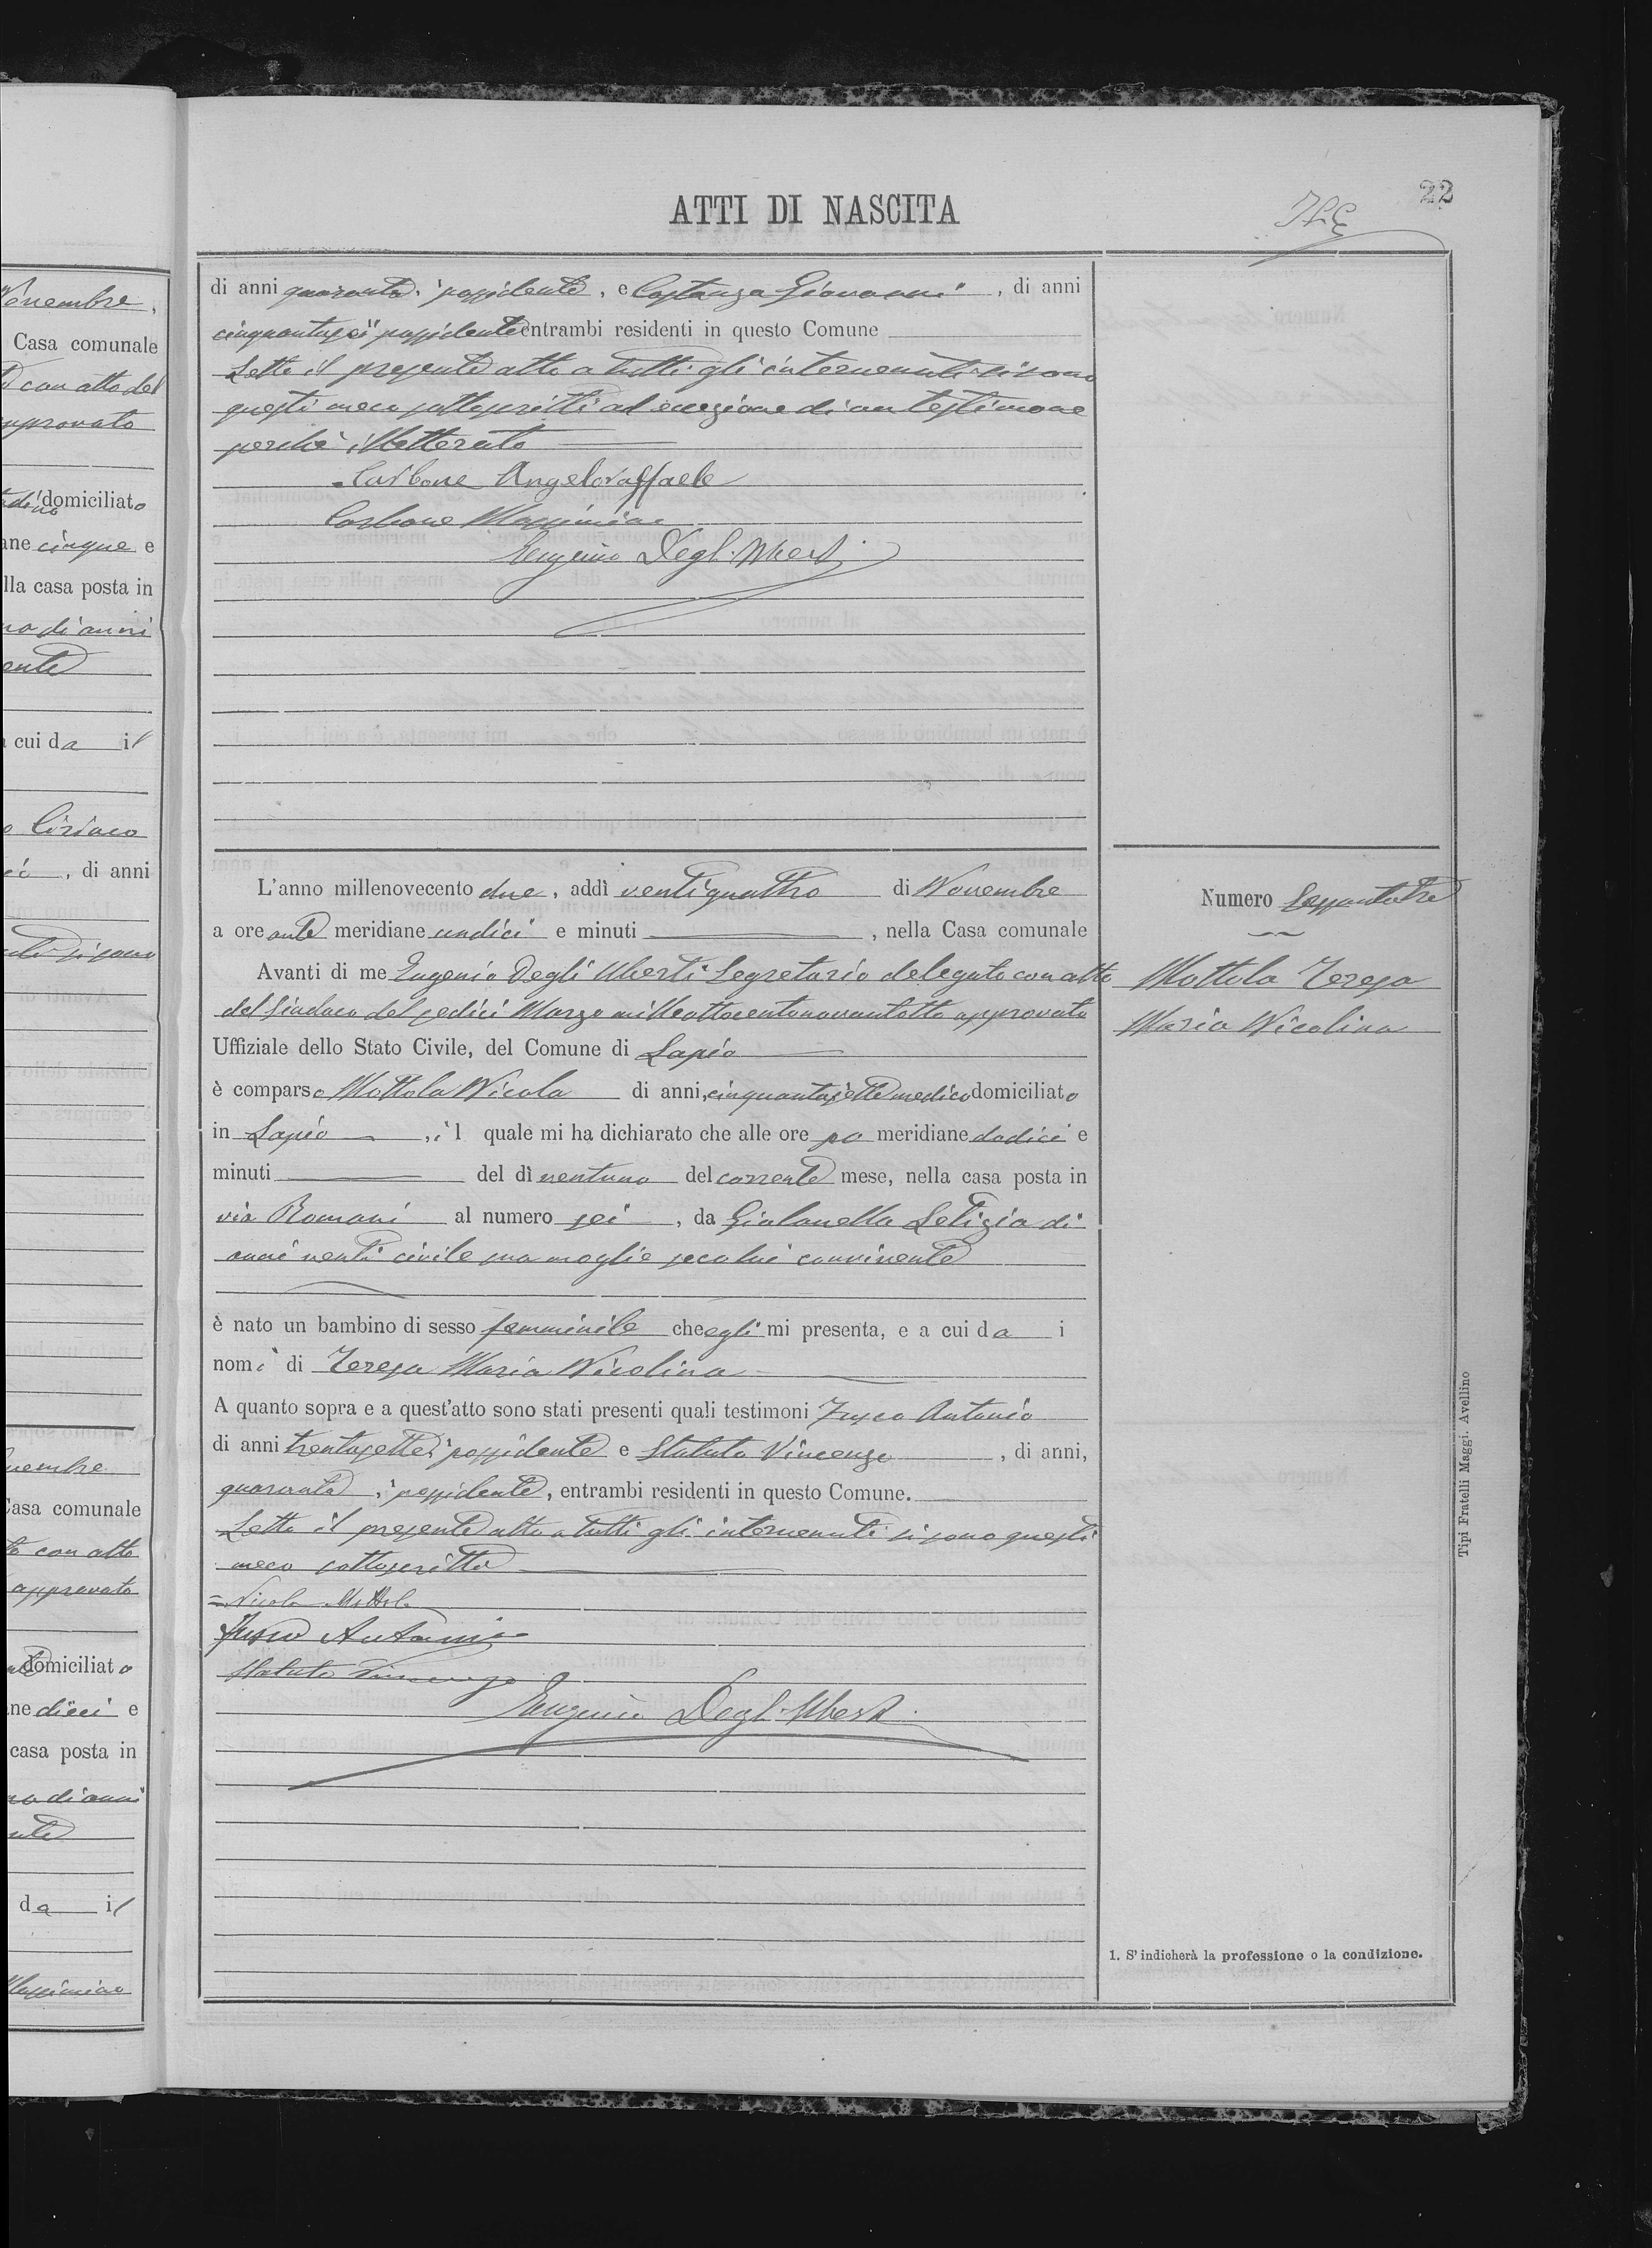 22
ATTI DI NASCITA
Novembre,
Casa comunale
con atto del
approvato
domiciliato
ane cinque e
lla casa posta in
no di anni
cui da il
Ciriaco
, di anni
vembre
Casa comunale
con atto
approvato
domiciliato
ne dieci e
casa posta in
no di anni
da il
di anni quaranta, possidente, e Costanza Giovanni, di anni
cinquantasei possidente entrambi residenti in questo Comune
Letto il presente atto a tutti gli intervenuti si sono
questi meco sottoscritti ad eccezione di un testimone
perchè illetterato
Carbone Angeloraffaele
Carbone Massimino
Eugenio Degli Uberti
L'anno millenovecento due, addì ventiquattro di Novembre
a ore ante meridiane undici e minuti, nella Casa comunale
Avanti di me Eugenio Degli Uberti Segretario delegato con atto
del Sindaco del sedici Marzo milleottocentonovantotto approvato
Uffiziale dello Stato Civile, del Comune di Lapio
è comparso Mottola Nicola di anni, cinquantasette medico domiciliato
in Lapio, il quale mi ha dichiarato che alle ore po meridiane dodici e
minuti del dì ventuno del corrente mese, nella casa posta in
via Romani al numero sei, da Gialanella Letizia di
anni venti civile sua moglie seco lui convivente
è nato un bambino di sesso femminile che egli mi presenta, e a cui da i
nomi di Teresa Maria Nicolina
A quanto sopra e a quest'atto sono stati presenti quali testimoni Fusco Antonio
di anni trentasette, possidente e Statuto Vincenzo, di anni,
quaranta, possidente, entrambi residenti in questo Comune.
Letto il presente atto a tutti gli intervenuti si sono questi
meco sottoscritti
Nicola Mottola
Fusco Antonio
Statuto Vincenzo
Eugenio Degli Uberti
Numero Sessantatre
Mottola Teresa
Maria Nicolina
1. S'indicherà la professione o la condizione.
Tipi Fratelli Maggi. Avellino